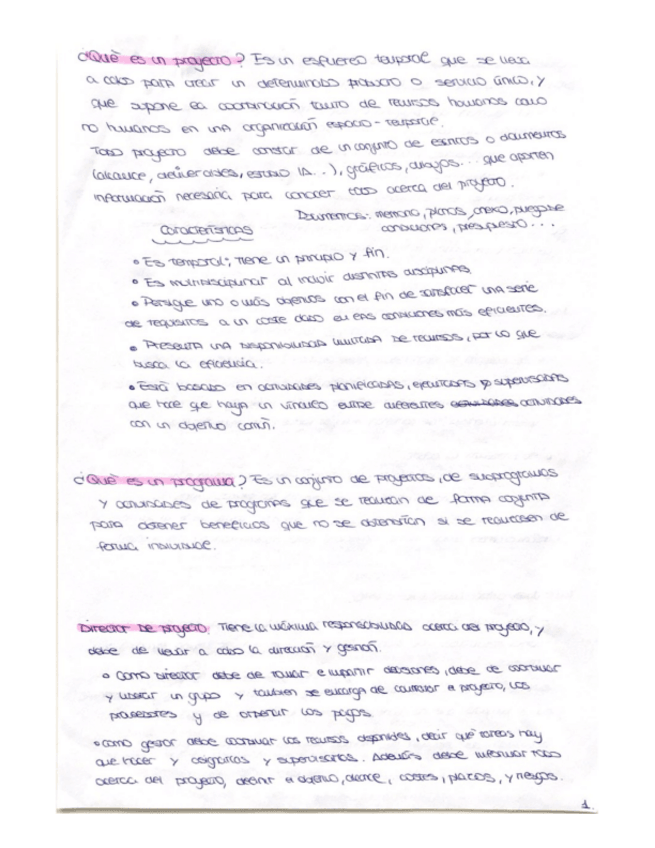 ¿Qué es un proyecto? Es un esfuerzo temporal que se lleva
a cabo para crear un determinado producto o servicio único, y
que supone la coordinación tanto de recursos humanos como
no humanos en una organización espacio-temporal.
Todo proyecto debe constar de un conjunto de escritos o documentos
(alcance, deliverables, estudio IA...), gráficos, dibujos... que aporten
información necesaria para conocer todo acerca del proyecto.
Documentos: memoria, planos, anexo, pliego de
condiciones, presupuesto...
Características
• Es temporal; tiene un principio y fin.
• Es multidisciplinar al incluir distintas disciplinas
• Persigue uno o más objetivos con el fin de satisfacer una serie
de requisitos a un coste dado en las condiciones más eficientes.
• Presenta una disponibilidad limitada de recursos, por lo que
busca la eficiencia.
• Está basado en actividades planificadas, ejecutadas y supervisadas
que hace que haya un vínculo entre diferentes actividades
con un objetivo común.
¿Qué es un programa? Es un conjunto de proyectos, de subprogramas
y actividades de programas que se realizan de forma conjunta
para obtener beneficios que no se obtendrían si se realizasen de
forma individual.
Director de proyecto: Tiene la máxima responsabilidad acerca del proyecto, y
debe de llevar a cabo la dirección y gestión.
• Como director debe de tomar e impartir decisiones, debe de coordinar
y liderar un grupo y también se encarga de controlar el proyecto, los
proveedores y de ordenar los pagos.
• Como gestor debe coordinar los recursos disponibles, decir qué tareas hay
que hacer y asignarlas y supervisarlas. Además debe informar todo
acerca del proyecto, definir el objetivo, alcance, costes, plazos, y riesgos.
1.